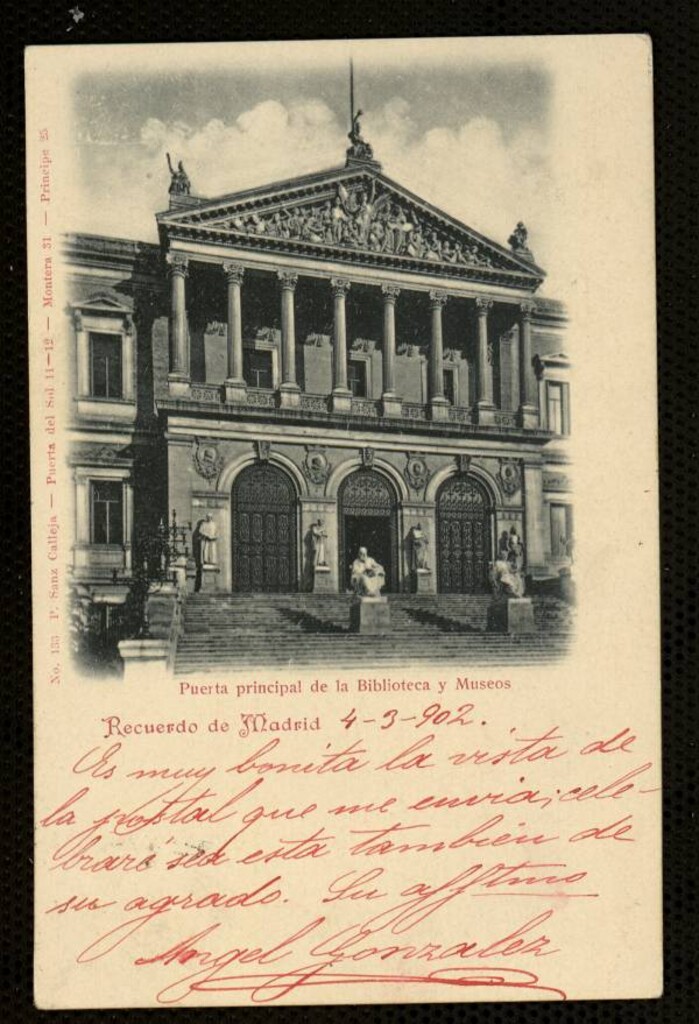 No. 133 P. Sanz Calleja — Puerta del Sol 11-12 — Montera 31 — Principe 25
Puerta principal de la Biblioteca y Museos
Recuerdo de Madrid 4-3-902.
Es muy bonita la vista de
la postal que me envia; cele-
braré sea esta también de
su agrado. Su afftmo
Angel Gonzalez